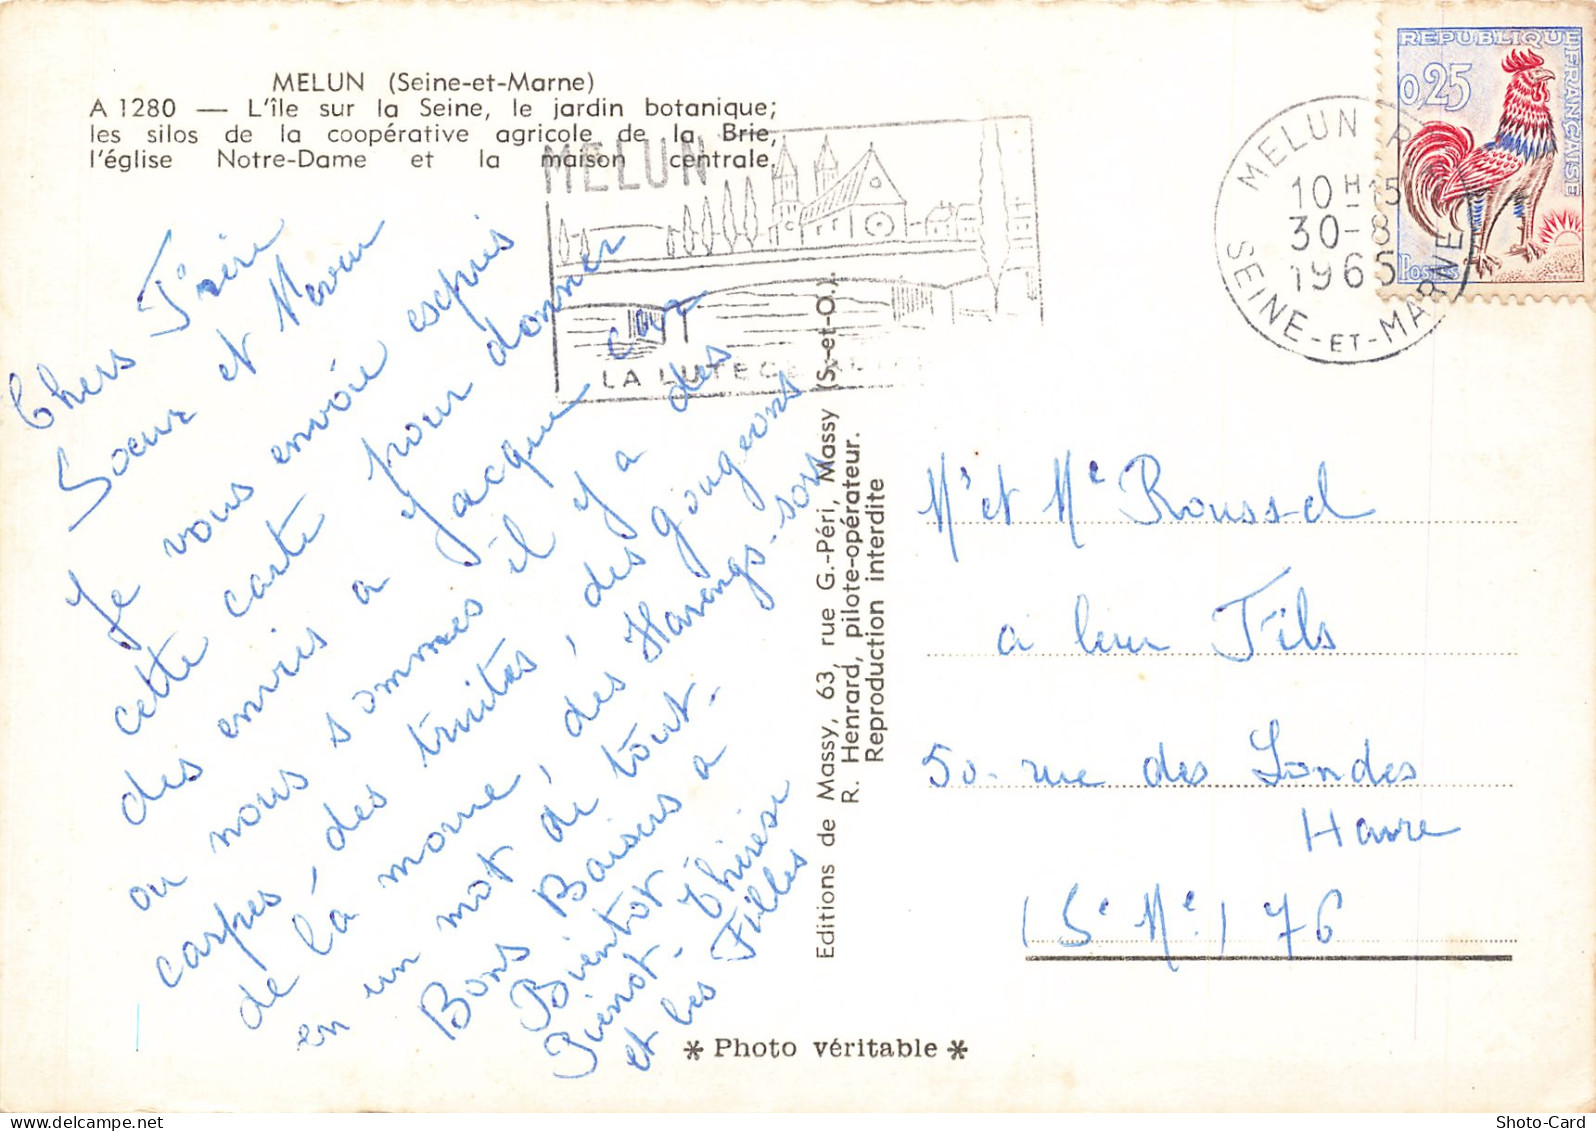 MELUN (Seine-et-Marne)
A 1280 — L'île sur la Seine, le jardin botanique;
les silos de la coopérative agricole de la Brie,
l'église Notre-Dame et la maison centrale,
MELUN
LA LUTECE
MELUN R
10 H 15
30-8
1965
SEINE-ET-MARNE
REPUBLIQUE FRANÇAISE
0,25
Postes
Chers Frère
Soeur et Neveu
Je vous envoie esepris
cette carte pour donner
des envris a Jacque car
ou nous sommes il y a des
carpes, des truites, des gougeons
de la morue, des Harengs-sors
en un mot de tout.
Bons Baisers a
Bientot
Pierrot. Thérèse
et les Filles
Editions de Massy, 63, rue G.-Péri, Massy (S.-et-O.).
R. Henrard, pilote-opérateur.
Reproduction interdite
Mr et Me Roussel
a leur Fils
50. rue des Londes
Havre
(Se Me) 76
* Photo véritable *
Shoto-Card